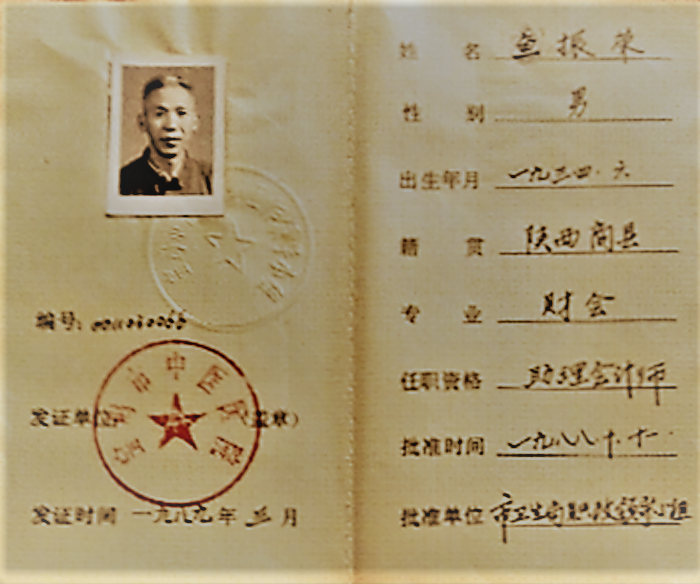 编号：0011020066
市中医医院
发证单位（盖章）
发证时间 一九八九年 三 月
姓名 查振荣
性别 男
出生年月 一九三四·六
籍贯 陕西商县
专业 财会
任职资格 助理会计师
批准时间 一九八八·十·十一
批准单位 市卫生局职改领导小组